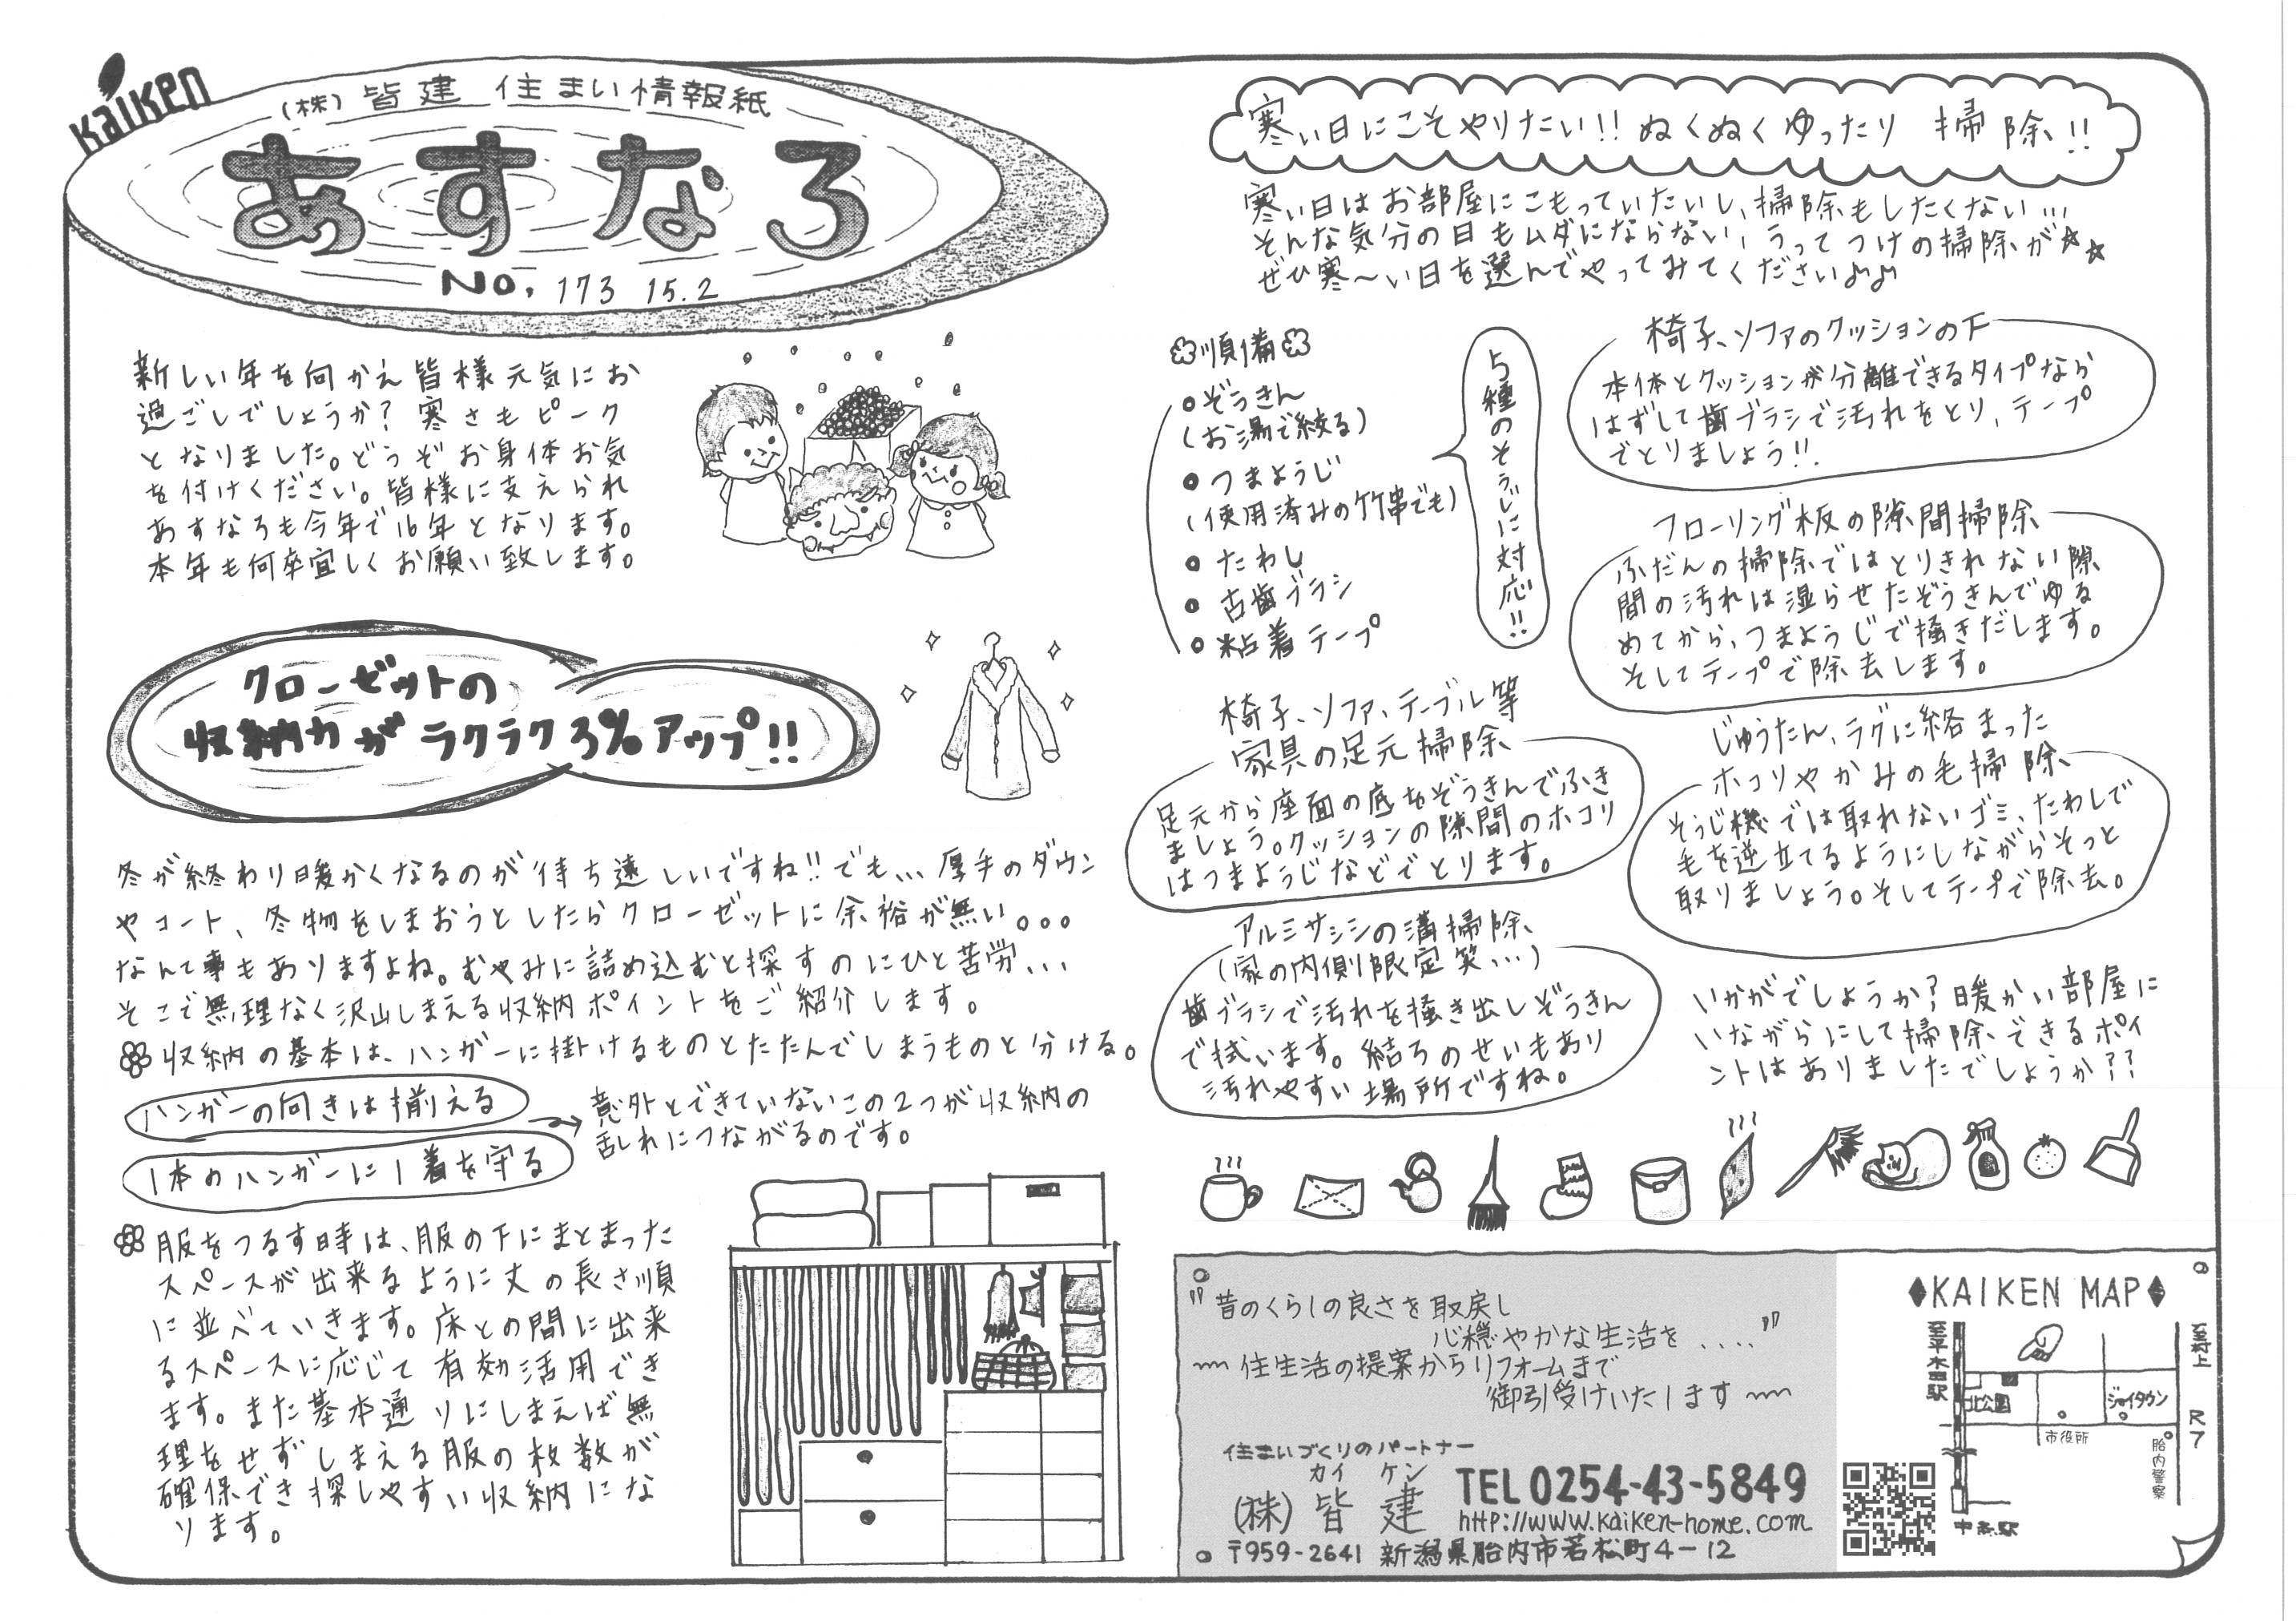 Kaiken
(株)皆建 住まい情報紙
あすなろ
No. 173 15.2
新しい年を向かえ皆様元気にお
過ごしでしょうか？寒さもピーク
となりました。どうぞお身体お気
を付けください。皆様に支えられ
あすなろも今年で16年となります。
本年も何卒宜しくお願い致します。
クローゼットの
収納力がラクラク3%アップ!!
冬が終わり暖かくなるのが待ち遠しいですね!!でも...厚手のダウン
やコート、冬物をしまおうとしたらクローゼットに余裕が無い。。。
なんて事もありますよね。むやみに詰め込むと探すのにひと苦労...
そこで無理なく沢山しまえる収納ポイントをご紹介します。
収納の基本は、ハンガーに掛けるものとたたんでしまうものと分ける。
ハンガーの向きは揃える
1本のハンガーに1着を守る
意外とできていないこの2つが収納の
乱れにつながるのです。
服をつるす時は、服の下にまとまった
スペースが出来るように丈の長さ順
に並べていきます。床との間に出来
るスペースに応じて有効活用でき
ます。また基本通りにしまえば無
理をせずしまえる服の枚数が
確保でき探しやすい収納にな
ります。
寒い日にこそやりたい!!ぬくぬくゆったり 掃除!!
寒い日はお部屋にこもっていたいし、掃除もしたくない...
そんな気分の日もムダにならない、うってつけの掃除が☆☆
ぜひ寒〜い日を選んでやってみてください♪♪
準備
●ぞうきん
(お湯で絞る)
●つまようじ
(使用済みの竹串でも)
●たわし
●古歯ブラシ
●粘着テープ
5種のそうじに対応!!
椅子、ソファのクッションの下
本体とクッションが分離できるタイプなら
はずして歯ブラシで汚れをとり、テープ
でとりましょう!!
フローリング板の隙間掃除
ふだんの掃除ではとりきれない隙
間の汚れは湿らせたぞうきんでゆる
めてから、つまようじで掻きだします。
そしてテープで除去します。
椅子、ソファ、テーブル等
家具の足元掃除
足元から座面の底をぞうきんでふき
ましょう。クッションの隙間のホコリ
はつまようじなどでとります。
じゅうたん、ラグに絡まった
ホコリやかみの毛掃除
そうじ機では取れないゴミ、たわしで
毛を逆立てるようにしながらそっと
取りましょう。そしてテープで除去。
アルミサッシの溝掃除
(家の内側限定笑...)
歯ブラシで汚れを掻き出しぞうきん
で拭います。結ろのせいもあり
汚れやすい場所ですね。
いかがでしょうか？暖かい部屋に
いながらにして掃除できるポイ
ントはありましたでしょうか？？
"昔のくらしの良さを取戻し
心穏やかな生活を...."
〜住生活の提案からリフォームまで
御引受けいたします〜
住まいづくりのパートナー
カイ ケン
(株)皆建
TEL 0254-43-5849
http://www.kaiken-home.com
〒959-2641 新潟県胎内市若松町4-12
◆KAIKEN MAP◆
至平木田駅
至村上
北公園
ジョイタウン
R7
市役所
胎内警察
中条駅